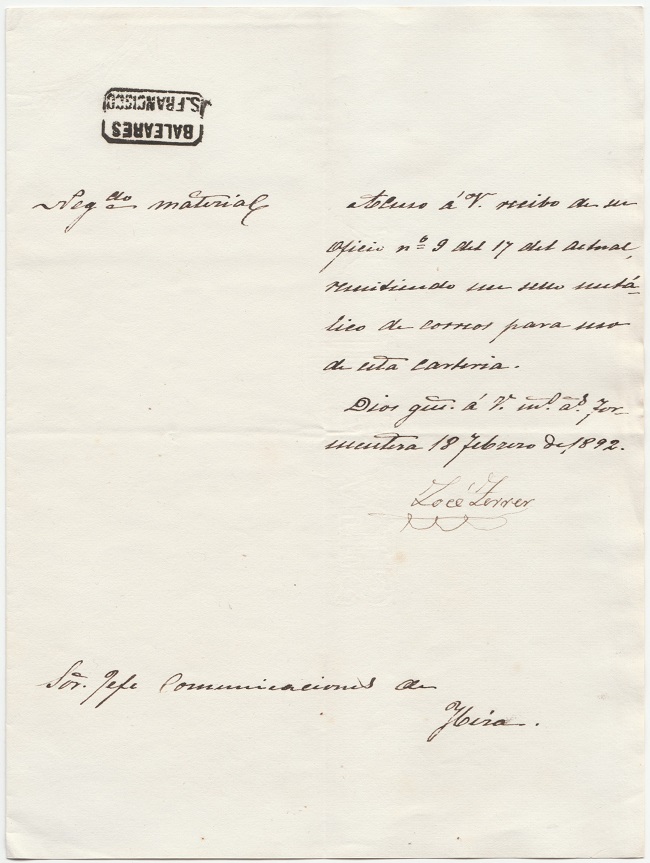 BALEARES
S. FRANCISCO
Neg.do material
Acuso á V. recibo de su
oficio nº 9 del 17 del actual,
remitiendo un sello metá-
lico de correos para uso
de esta carteria.
Dios gue. á V. ms. as. For-
mentera 18 Febrero de 1892.
José Ferrer
Sor. Jefe Comunicaciones de
Ibiza.